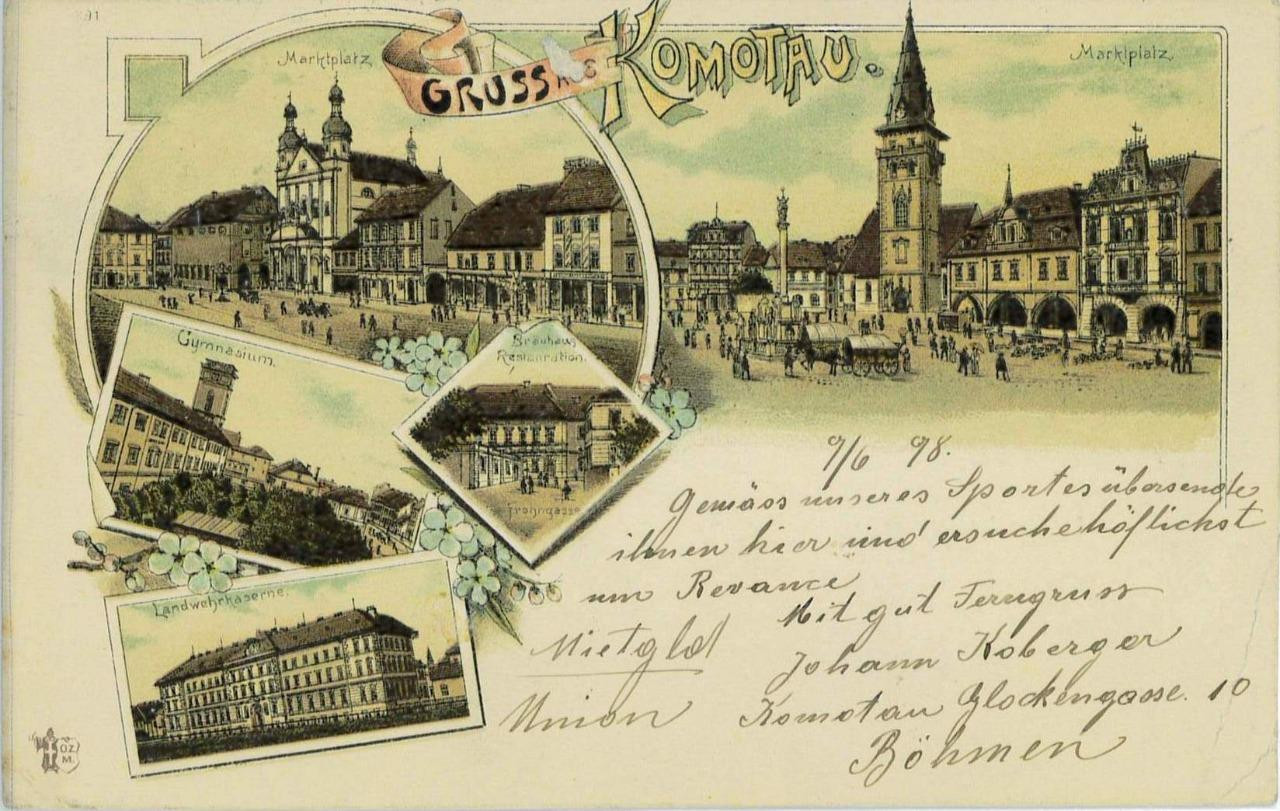 391
Marktplatz
GRUSS AUS KOMOTAU.
Marktplatz
Gymnasium.
Bräuhaus
Restauration.
Frohngasse
Landwehrkaserne.
9/6 98.
Gemäss unseres Sportes übersende
ihnen hier und ersuche höflichst
um Revance
Mit gut Ferngruss
Mietgld
Johann Koberger
Union
Komotau Glockengasse. 10
Böhmen
OZ.
M.